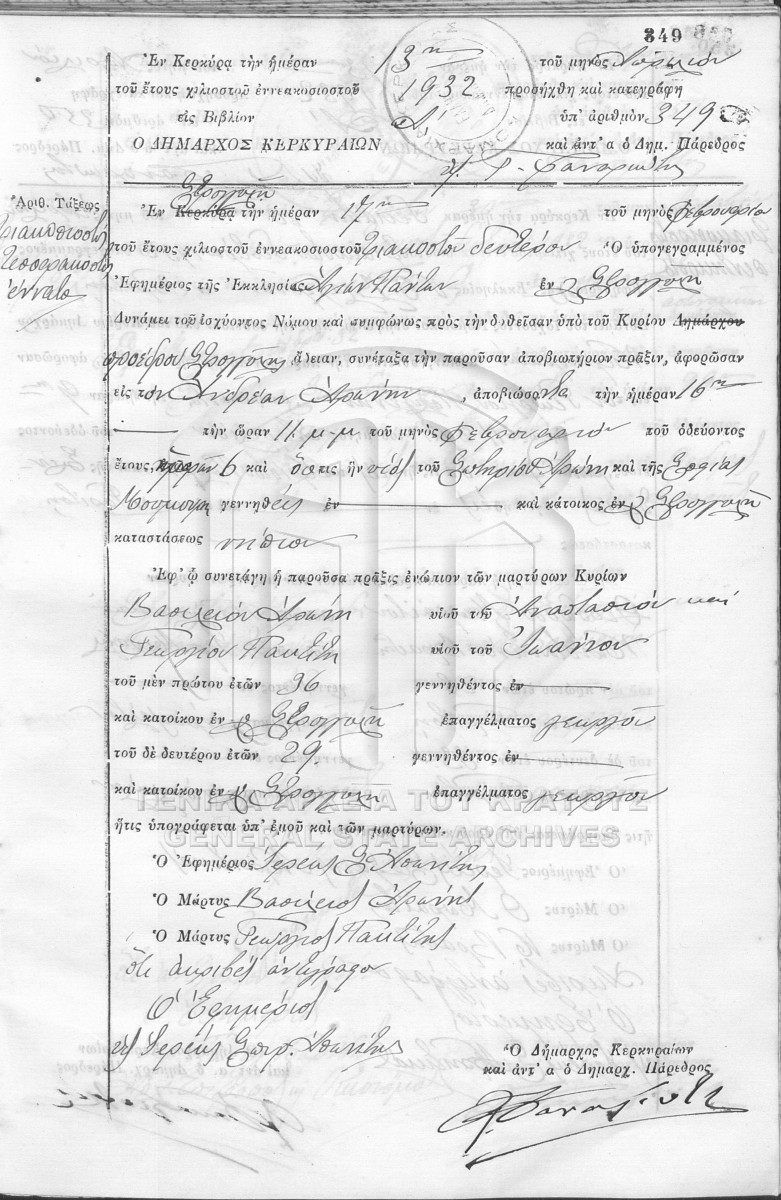 349
Ἐν Κερκύρᾳ τὴν ἡμέραν 13ην τοῦ μηνὸς
τοῦ ἔτους χιλιοστοῦ ἐννεακοσιοστοῦ 1932 προσήχθη καὶ κατεγράφη
εἰς Βιβλίον Α' ὑπ' ἀριθμὸν 349
Ο ΔΗΜΑΡΧΟΣ ΚΕΡΚΥΡΑΙΩΝ καὶ ἀντ' α ὁ Δημ. Πάρεδρος
Στρογγυλῇ
Ἀριθ. Τάξεως
Ἐν Κερκύρᾳ τὴν ἡμέραν 17ην τοῦ μηνὸς Φεβρουαρίου
τριακοσιοστὸν
τοῦ ἔτους χιλιοστοῦ ἐννεακοσιοστοῦ τριακοστοῦ δευτέρου Ὁ ὑπογεγραμμένος
τεσσαρακοστὸν
ἔννατον
Ἐφημέριος τῆς Ἐκκλησίας Ἁγίων Πάντων ἐν Στρογγυλῇ
Δυνάμει τοῦ ἰσχύοντος Νόμου καὶ συμφώνως πρὸς τὴν δοθεῖσαν ὑπὸ τοῦ Κυρίου Δημάρχου
προέδρου Στρογγυλῆς ἄδειαν, συνέταξα τὴν παροῦσαν ἀποβιωτήριον πρᾶξιν, ἀφορῶσαν
εἰς τὸν Ἀνδρέαν Ἀρώνη, ἀποβιώσαντα τὴν ἡμέραν 16ην
τὴν ὥραν 11 μ.μ τοῦ μηνὸς Φεβρουαρίου τοῦ ὁδεύοντος
ἔτους, 6 καὶ ὅστις ἦν υἱὸς τοῦ Σωτηρίου Ἀρώνη καὶ τῆς Σοφίας
γεννηθεὶς ἐν καὶ κάτοικος ἐν Στρογγυλῇ
καταστάσεως νήπιον
Ἐφ' ᾧ συνετάγη ἡ παροῦσα πρᾶξις ἐνώπιον τῶν μαρτύρων Κυρίων
Βασιλείου Ἀρώνη υἱοῦ τοῦ Ἀναστασίου καὶ
Γεωργίου Πακτίτη υἱοῦ τοῦ Ἰωάννου
τοῦ μὲν πρώτου ἐτῶν 36 γεννηθέντος ἐν
καὶ κατοίκου ἐν Στρογγυλῇ ἐπαγγέλματος γεωργοῦ
τοῦ δὲ δευτέρου ἐτῶν 29. γεννηθέντος ἐν
καὶ κατοίκου ἐν Στρογγυλῇ ἐπαγγέλματος γεωργοῦ
ΓΕΝΙΚΑ ΑΡΧΕΙΑ ΤΟΥ ΚΡΑΤΟΥΣ
ἥτις ὑπογράφεται ὑπ' ἐμοῦ καὶ τῶν μαρτύρων.
GENERAL STATE ARCHIVES
Ὁ Ἐφημέριος Ἱερεὺς Σ. Ἀσπιώτης
Ὁ Μάρτυς Βασίλειος Ἀρώνης
Ὁ Μάρτυς Γεώργιος Πακτίτης
Ὅτι ἀκριβὲς ἀντίγραφον
Ὁ Ἐφημέριος
Ἱερεὺς Σπυρ. Ἀσπιώτης
Ὁ Δήμαρχος Κερκυραίων
καὶ ἀντ' α ὁ Δημαρχ. Πάρεδρος